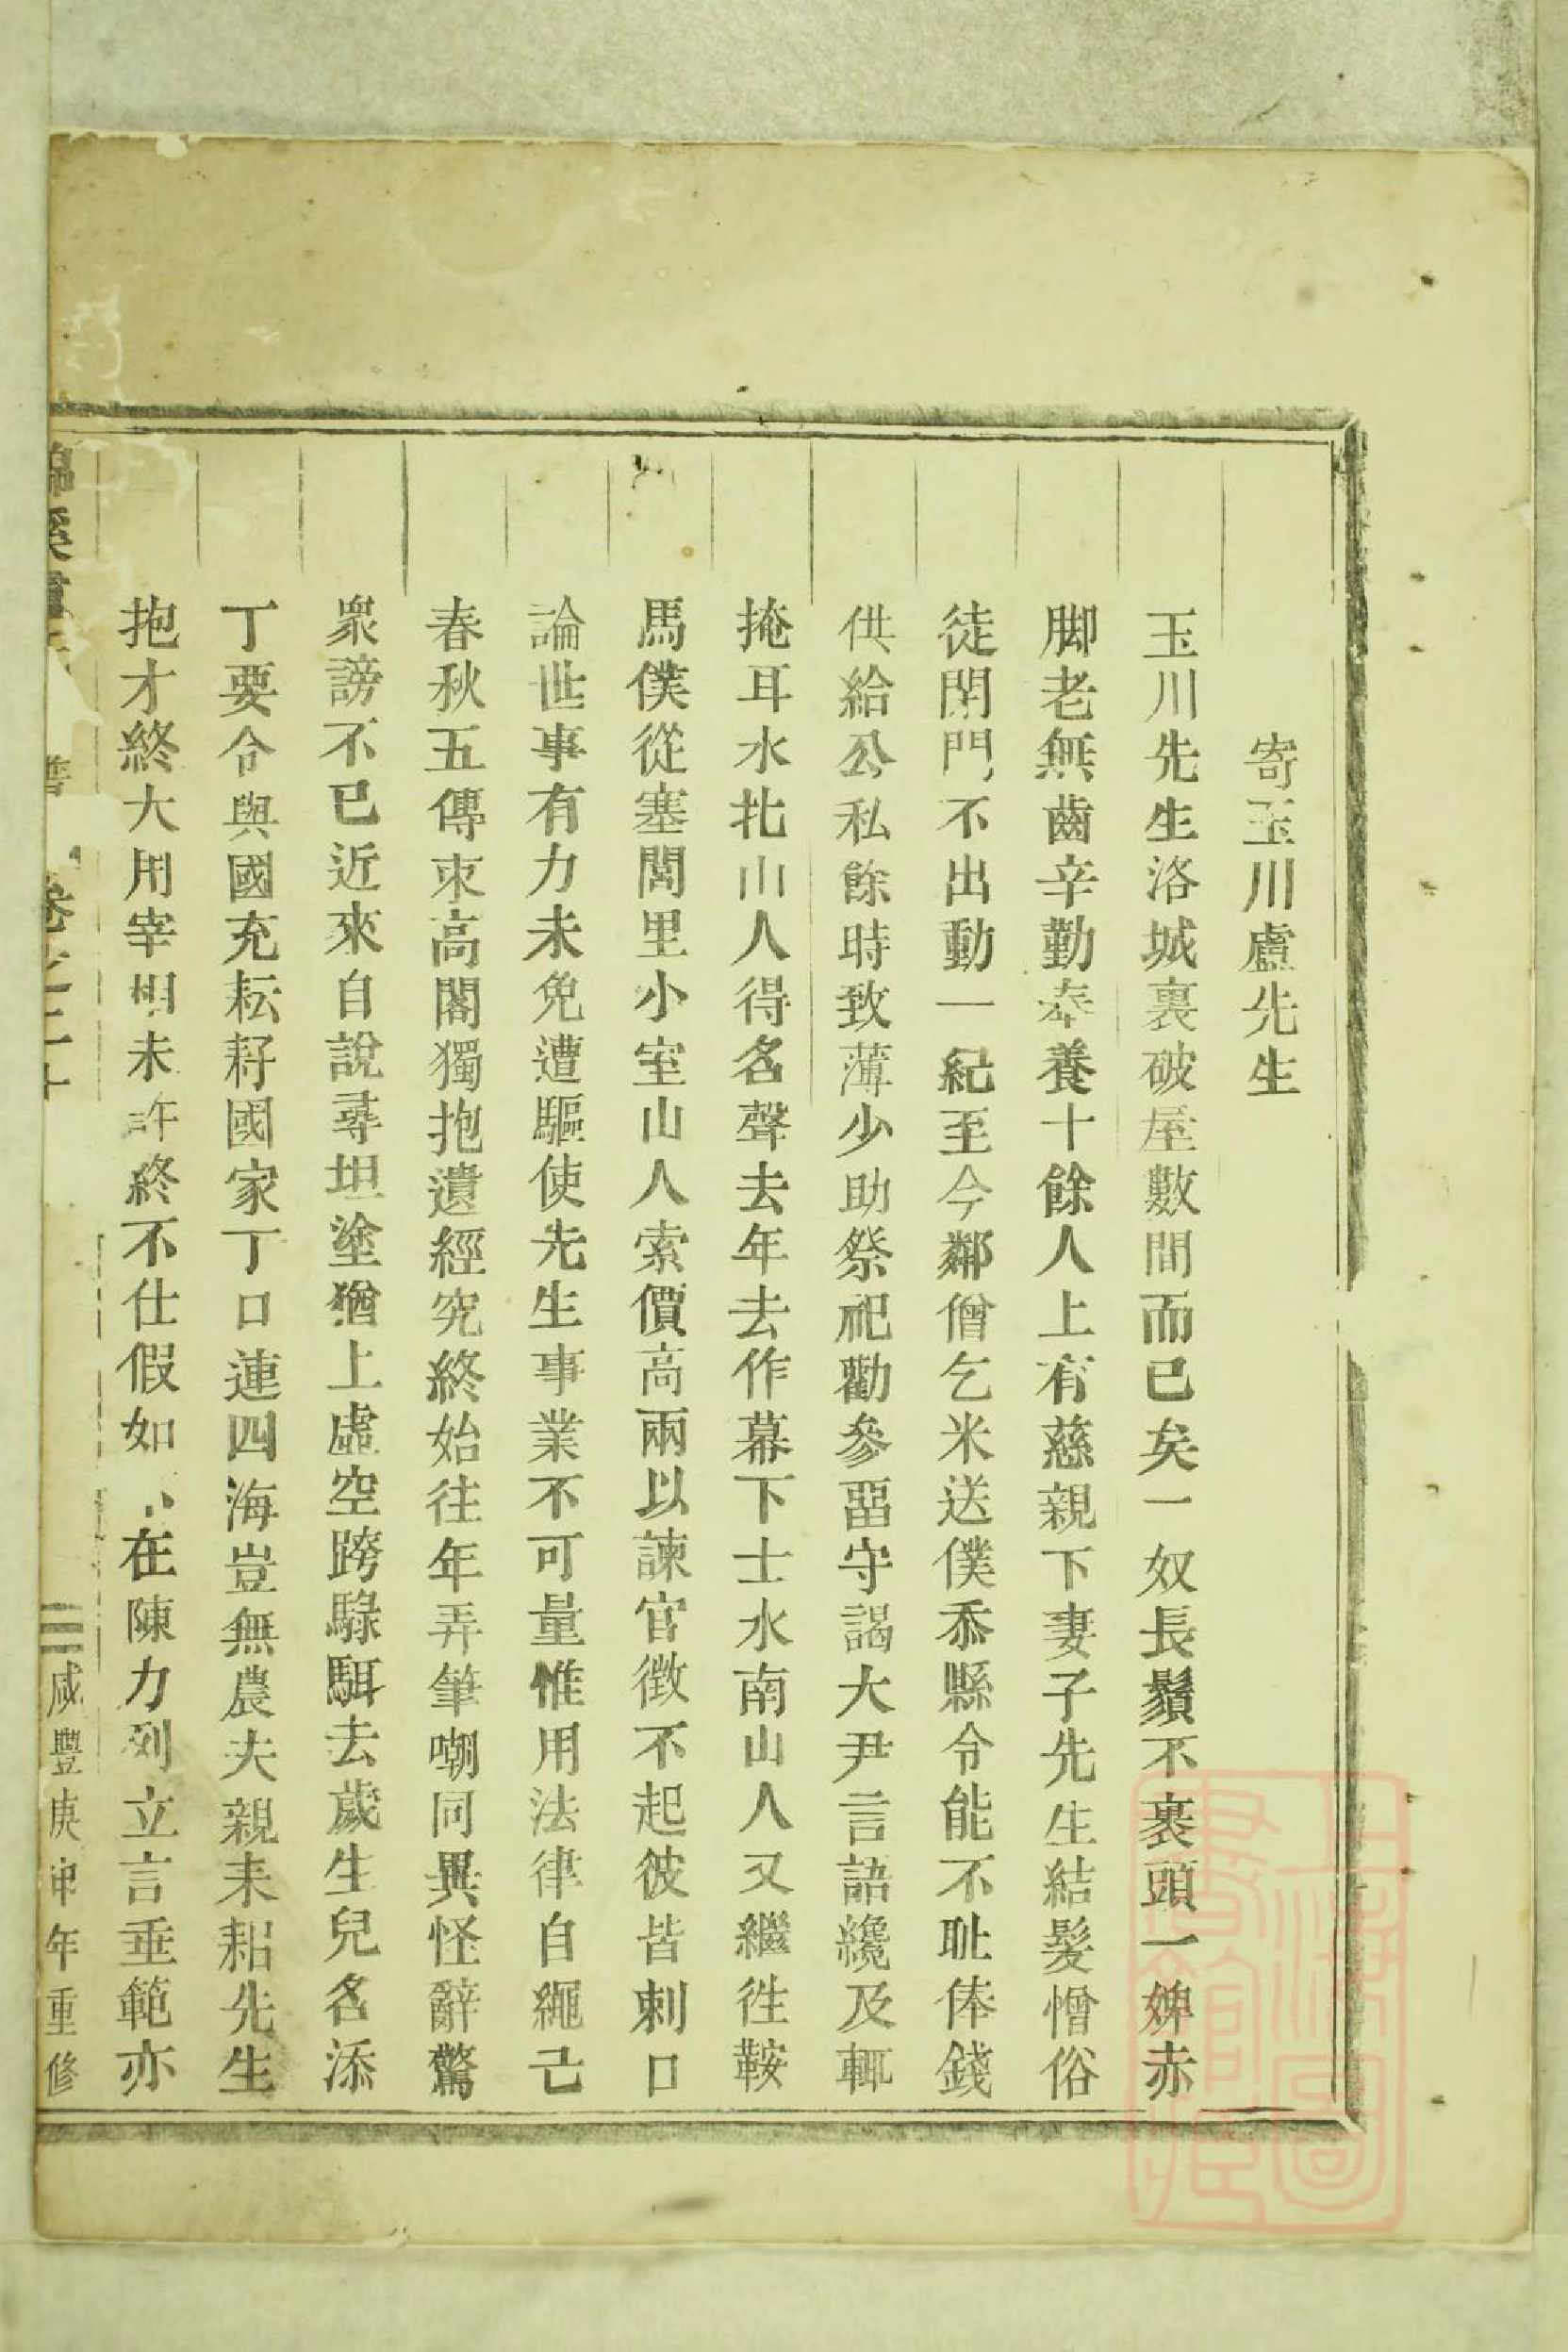 寄玉川盧先生
玉川先生洛城裏破屋數間而已矣一奴長鬚不裹頭一婢赤
脚老無齒辛勤奉養十餘人上有慈親下妻子先生結髮憎俗
徒閉門不出動一紀至今鄰僧乞米送僕忝縣令能不耻俸錢
供給公私餘時致薄少助祭祀勸參畱守謁大尹言語纔及輒
掩耳水北山人得名聲去年去作幕下士水南山人又繼徃鞍
馬僕從塞閭里小室山人索價高兩以諫官徴不起彼皆刺口
論世事有力未免遭驅使先生事業不可量惟用法律自繩己
春秋五傳束高閣獨抱遺經究終始往年弄筆嘲同異怪辭驚
衆謗不已近來自說尋坦塗猶上虛空跨騄駬去歲生兒名添
丁要令與國充耘耔國家丁口連四海豈無農夫親耒耜先生
抱才終大用宰相未許終不仕假如不在陳力列立言垂範亦
譜
卷之二十
三
咸豐庚申年重修
上海圖書館藏